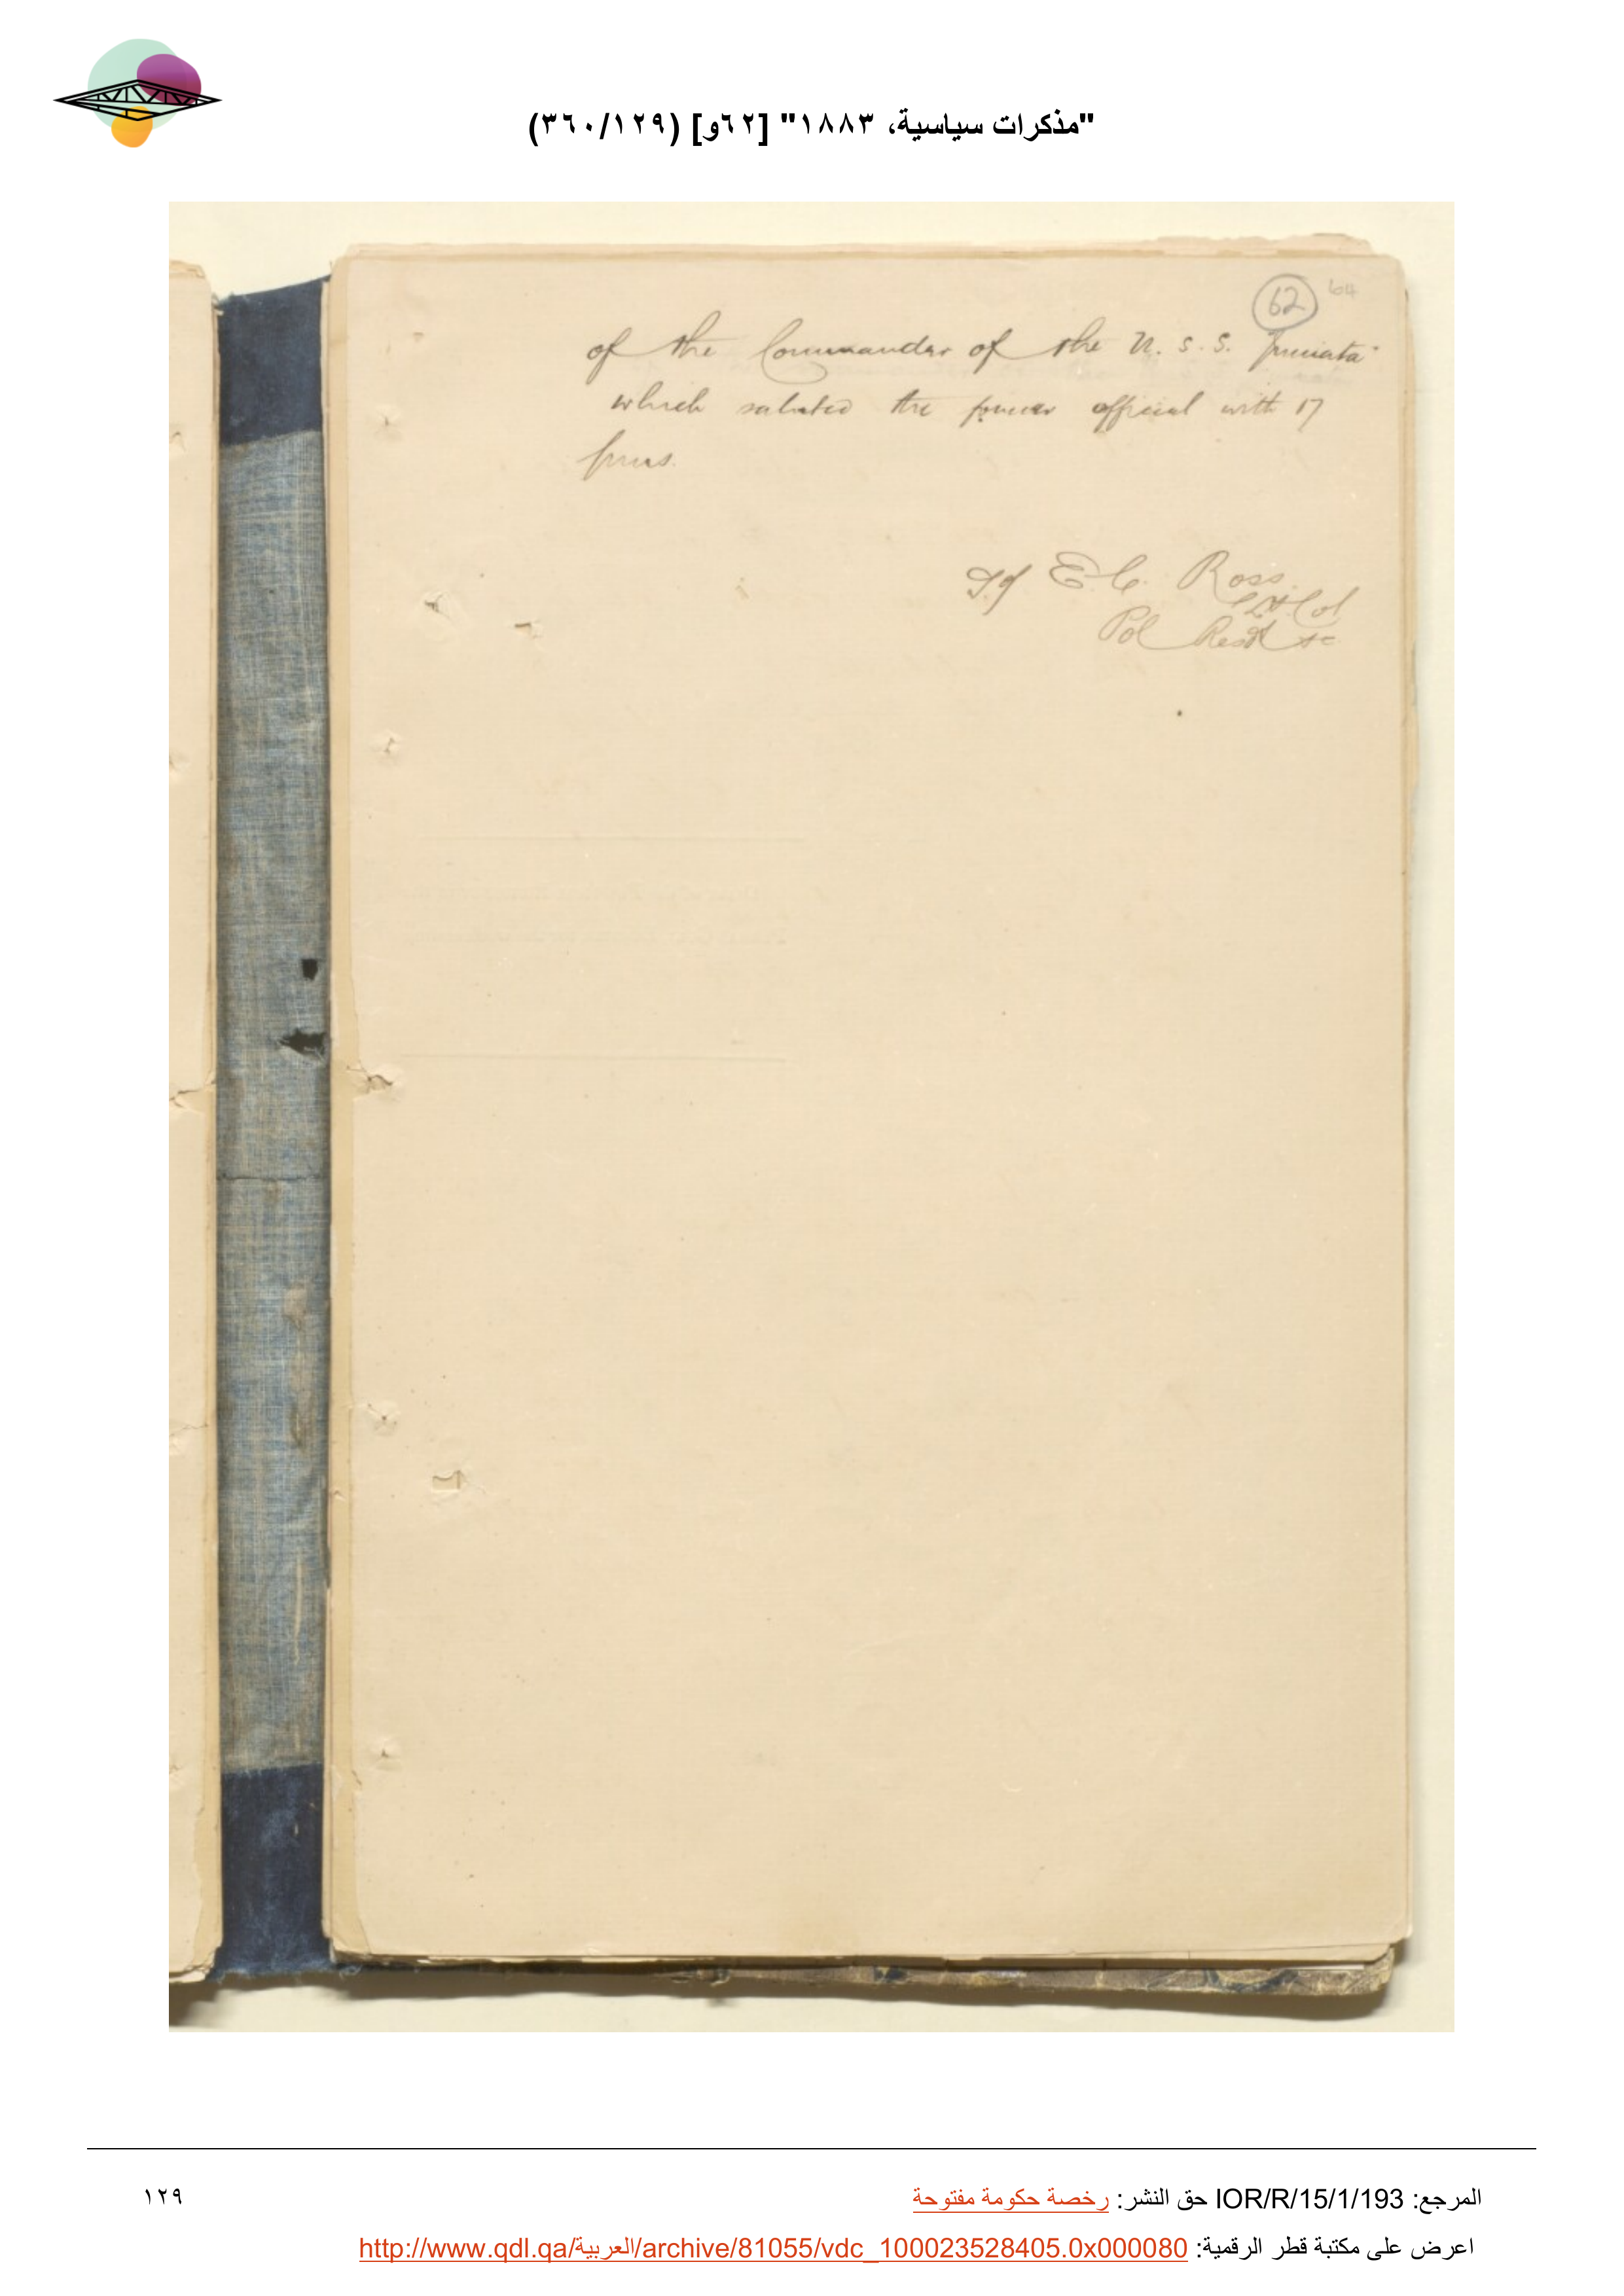 "مذكرات سياسية، ١٨٨٣" [٦٢و] (٣٦٠/١٢٩)
62 64
of the Commander of the U. S. S. Juniata
which saluted the former official with 17
guns.
Sg E. C. Ross
Lt Col
Pol Resdt &c
المرجع: IOR/R/15/1/193 حق النشر: رخصة حكومة مفتوحة
١٢٩
اعرض على مكتبة قطر الرقمية: http://www.qdl.qa/العربية/archive/81055/vdc_100023528405.0x000080